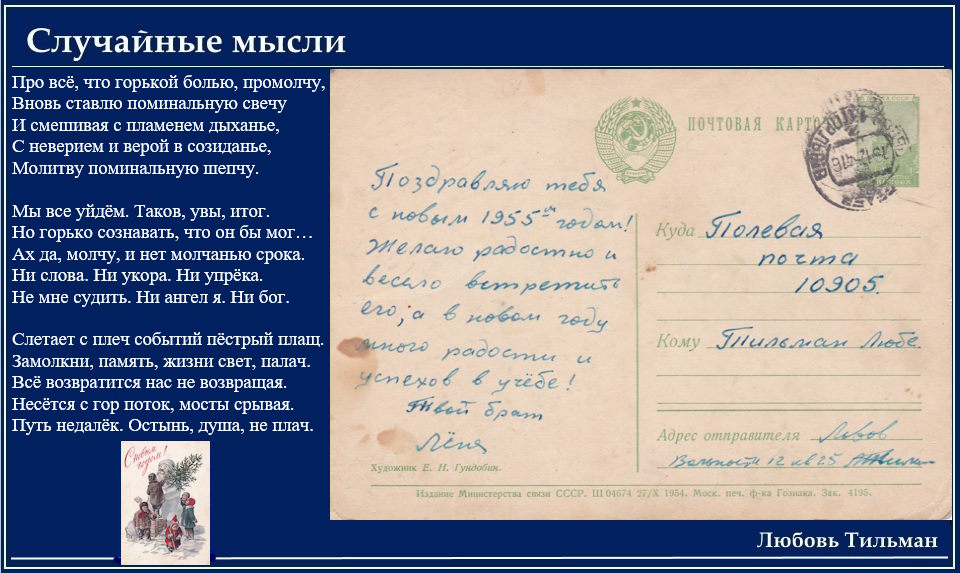 Случайные мысли
Про всё, что горькой болью, промолчу,
Вновь ставлю поминальную свечу
И смешивая с пламенем дыханье,
С неверием и верой в созиданье,
Молитву поминальную шепчу.
Мы все уйдём. Таков, увы, итог.
Но горько сознавать, что он бы мог…
Ах да, молчу, и нет молчанью срока.
Ни слова. Ни укора. Ни упрёка.
Не мне судить. Ни ангел я. Ни бог.
Слетает с плеч событий пёстрый плащ.
Замолкни, память, жизни свет, палач.
Всё возвратится нас не возвращая.
Несётся с гор поток, мосты срывая.
Путь недалёк. Остынь, душа, не плач.
С новым
годом!
ПОЧТОВАЯ КАРТО
Поздравляю тебя
с новым 1955ым годом!
Желаю радостно и
весело встретить
его, а в новом году
много радости и
успехов в учёбе!
Твой брат
Лёня
Художник Е. Н. Гундобин.
Куда Полевая
почта
10905.
Кому Тильман Любе.
Адрес отправителя Львов
Вольности 12 кв 25
Издание Министерства связи СССР. Ш 04674 27/X 1954. Моск. печ. ф-ка Гознака. Зак. 4195.
Любовь Тильман